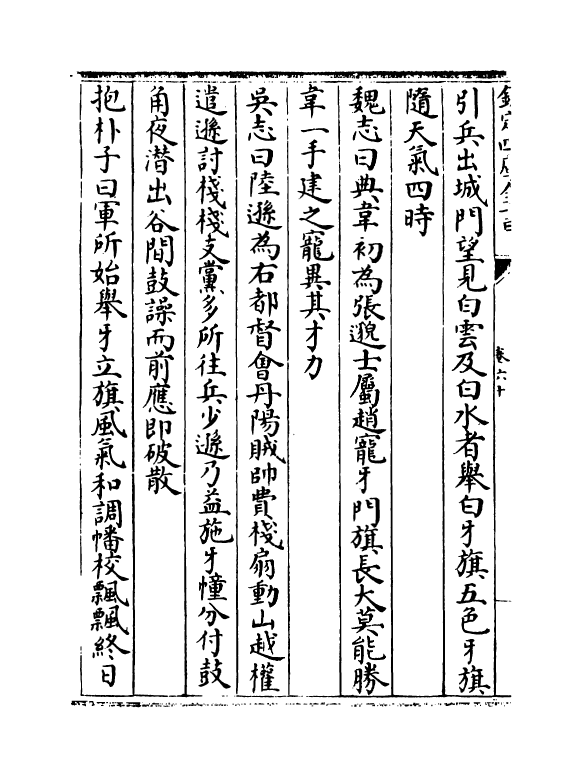 引兵出城門望見白雲及白水者舉白牙旗五色牙旗
隨天氣四時
魏志曰典韋初為張邈士屬趙寵牙門旗長大莫能勝
韋一手建之寵異其才力
吳志曰陸遜為右都督㑹丹陽賊帥費棧扇動山越權
遣遜討棧棧支黨多所往兵少遜乃益施牙幢分付鼓
角夜潛出谷間鼓譟而前應即破散
抱朴子曰軍所始舉牙立旗風氣和調幡校飄飄終日
卷六十